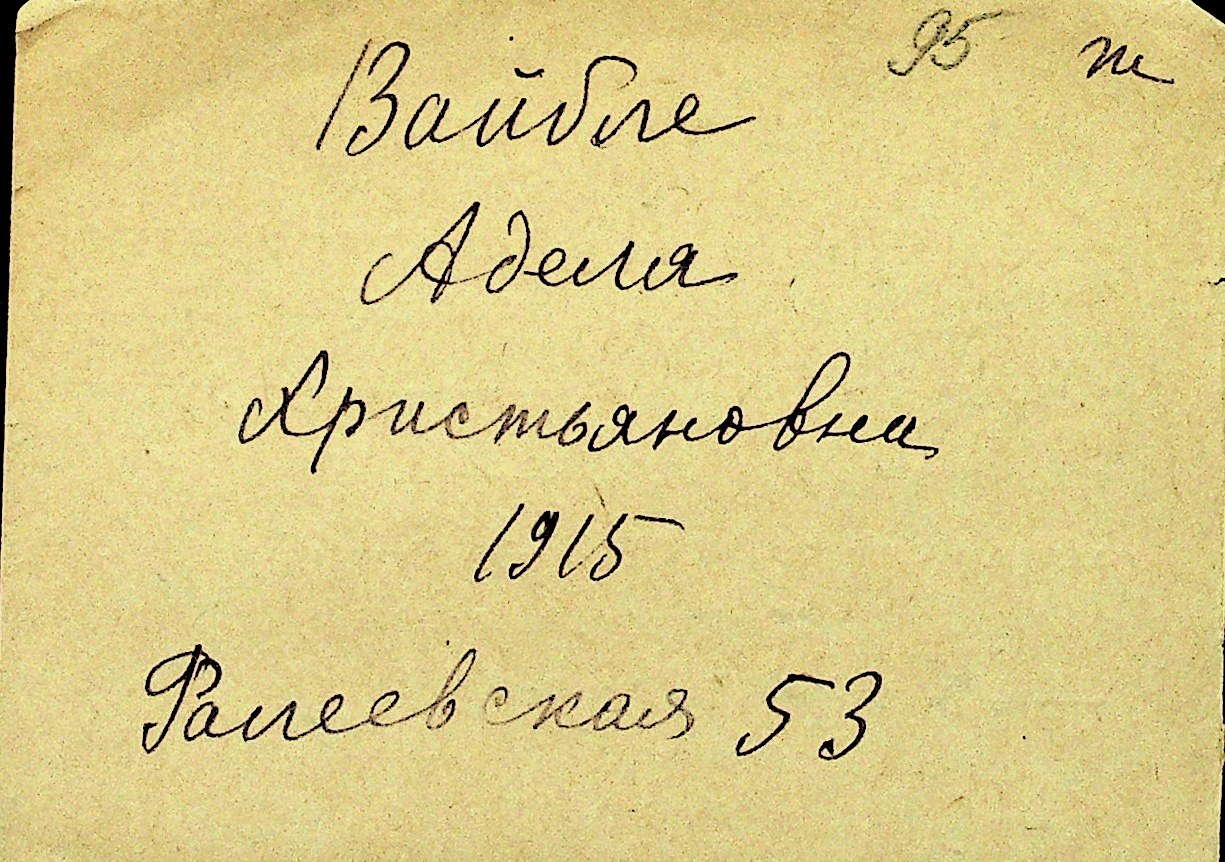 95
Вайбле
Аделя
Христьяновна
1915
Фалеевская 53